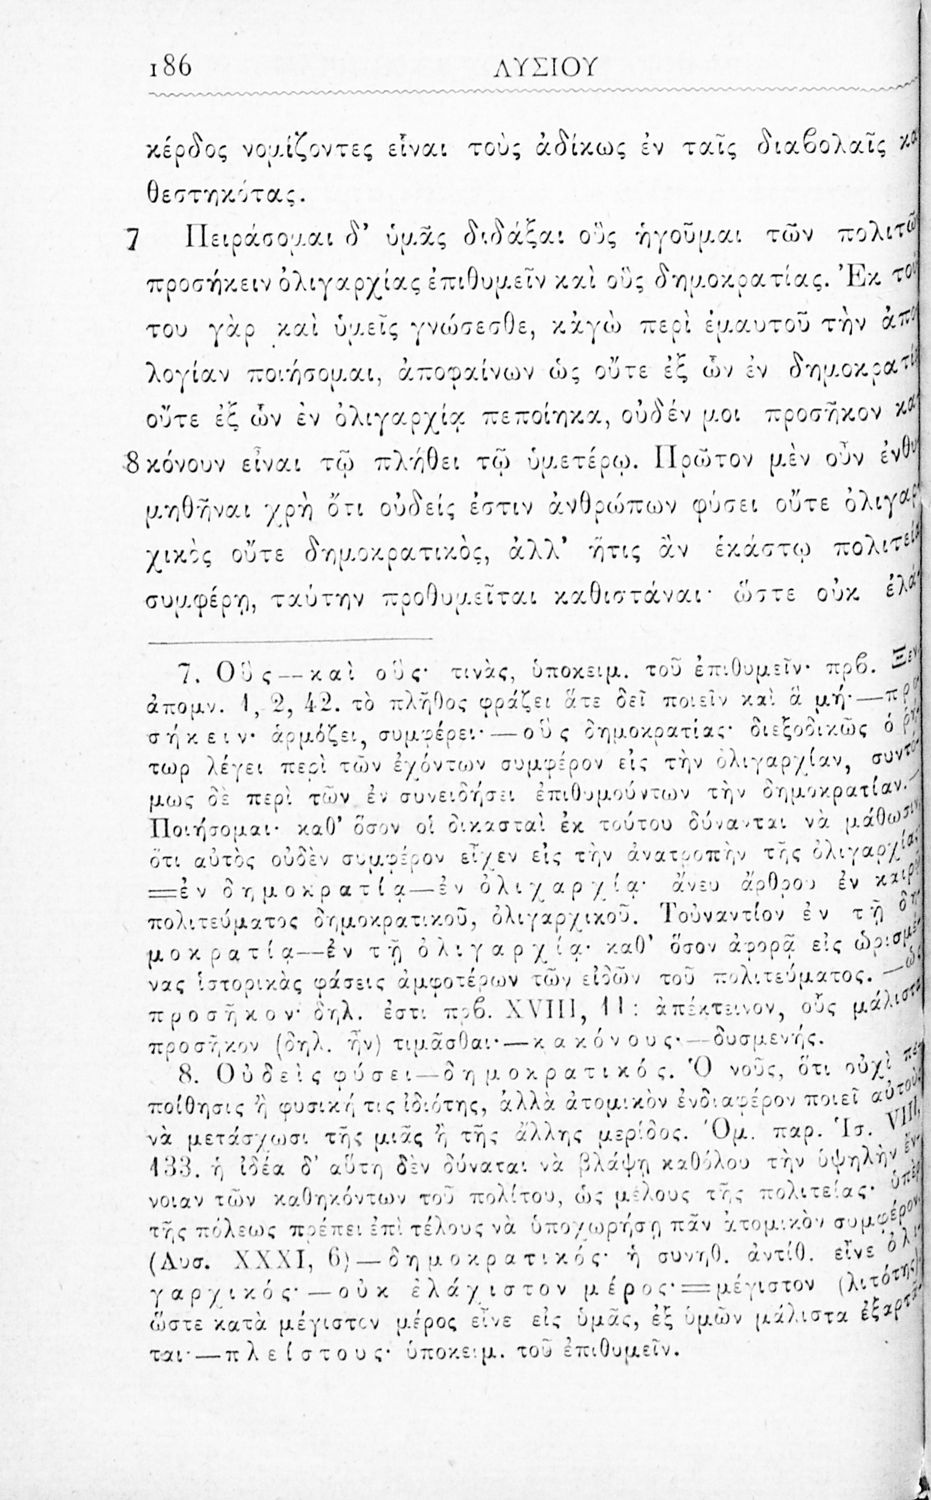 186 ΛΥΣΙΟΥ
κέρδος νομίζοντες εἶναι τοὺς ἀδίκως ἐν ταῖς διαβολαῖς κα
θεστηκότας.
7 Πειράσομαι δ’ ὑμᾶς διδάξαι οὓς ἡγοῦμαι τῶν πολιτῶ
προσήκειν ὀλιγαρχίας ἐπιθυμεῖν καὶ οὓς δημοκρατίας. Ἐκ τού
του γὰρ καὶ ὑμεῖς γνώσεσθε, κἀγὼ περὶ ἐμαυτοῦ τὴν ἀπο
λογίαν ποιήσομαι, ἀποφαίνων ὡς οὔτε ἐξ ὧν ἐν δημοκρατί
οὔτε ἐξ ὧν ἐν ὀλιγαρχίᾳ πεποίηκα, οὐδέν μοι προσῆκον κα
8 κόνουν εἶναι τῷ πλήθει τῷ ὑμετέρῳ. Πρῶτον μὲν οὖν ἐνθυ
μηθῆναι χρὴ ὅτι οὐδείς ἐστιν ἀνθρώπων φύσει οὔτε ὀλιγαρ
χικὸς οὔτε δημοκρατικὸς, ἀλλ’ ἥτις ἂν ἑκάστῳ πολιτεία
συμφέρῃ, ταύτην προθυμεῖται καθιστάναι· ὥστε οὐκ ἐλά
7. Οὓς — καὶ οὓς· τινὰς, ὑποκειμ. τοῦ ἐπιθυμεῖν· πρβ. Ξεν
ἀπομν. 1, 2, 42. τὸ πλῆθος φράζει ἅτε δεῖ ποιεῖν καὶ ἃ μή·—προ
σήκειν· ἁρμόζει, συμφέρει·—οὓς δημοκρατίας· διεξοδικῶς ὁ ῥή
τωρ λέγει περὶ τῶν ἐχόντων συμφέρον εἰς τὴν ὀλιγαρχίαν, συντό
μως δὲ περὶ τῶν ἐν συνειδήσει ἐπιθυμούντων τὴν δημοκρατίαν.—
Ποιήσομαι· καθ’ ὅσον οἱ δικασταὶ ἐκ τούτου δύνανται νὰ μάθωσιν
ὅτι αὐτὸς οὐδὲν συμφέρον εἶχεν εἰς τὴν ἀνατροπὴν τῆς ὀλιγαρχίας
=ἐν δημοκρατίᾳ—ἐν ὀλιγαρχίᾳ· ἄνευ ἄρθρου ἐν καιρῷ
πολιτεύματος δημοκρατικοῦ, ὀλιγαρχικοῦ. Τοὐναντίον ἐν τῇ δη
μοκρατίᾳ—ἐν τῇ ὀλιγαρχίᾳ· καθ’ ὅσον ἀφορᾷ εἰς ὡρισμέ
νας ἱστορικὰς φάσεις ἀμφοτέρων τῶν εἰδῶν τοῦ πολιτεύματος. —ὡς
προσῆκον· δηλ. ἐστι πρβ. XVIII, 11: ἀπέκτεινον, οὓς μάλιστα
προσῆκον (δηλ. ἦν) τιμᾶσθαι·—κακόνους·—δυσμενής.
8. Οὐδεὶς φύσει—δημοκρατικός. Ὁ νοῦς, ὅτι οὐχὶ πε
ποίθησις ἢ φυσική τις ἰδιότης, ἀλλὰ ἀτομικὸν ἐνδιαφέρον ποιεῖ αὐτοὺς
νὰ μετάσχωσι τῆς μιᾶς ἢ τῆς ἄλλης μερίδος. Ὁμ. παρ. Ἰσ. VIII,
133. ἡ ἰδέα δ’ αὕτη δὲν δύναται νὰ βλάψῃ καθόλου τὴν ὑψηλὴν ἔν
νοιαν τῶν καθηκόντων τοῦ πολίτου, ὡς μέλους τῆς πολιτείας· ὑπὲρ
τῆς πόλεως πρέπει ἐπὶ τέλους νὰ ὑποχωρήσῃ πᾶν ἀτομικὸν συμφέρον
(Λυσ. XXXI, 6)—δημοκρατικός· ἡ συνηθ. ἀντίθ. εἶνε ὀλι
γαρχικός·—οὐκ ἐλάχιστον μέρος·=μέγιστον (λιτότης)
ὥστε κατὰ μέγιστον μέρος εἶνε εἰς ὑμᾶς, ἐξ ὑμῶν μάλιστα ἐξαρτᾶ
ται·—πλείστους· ὑποκειμ. τοῦ ἐπιθυμεῖν.